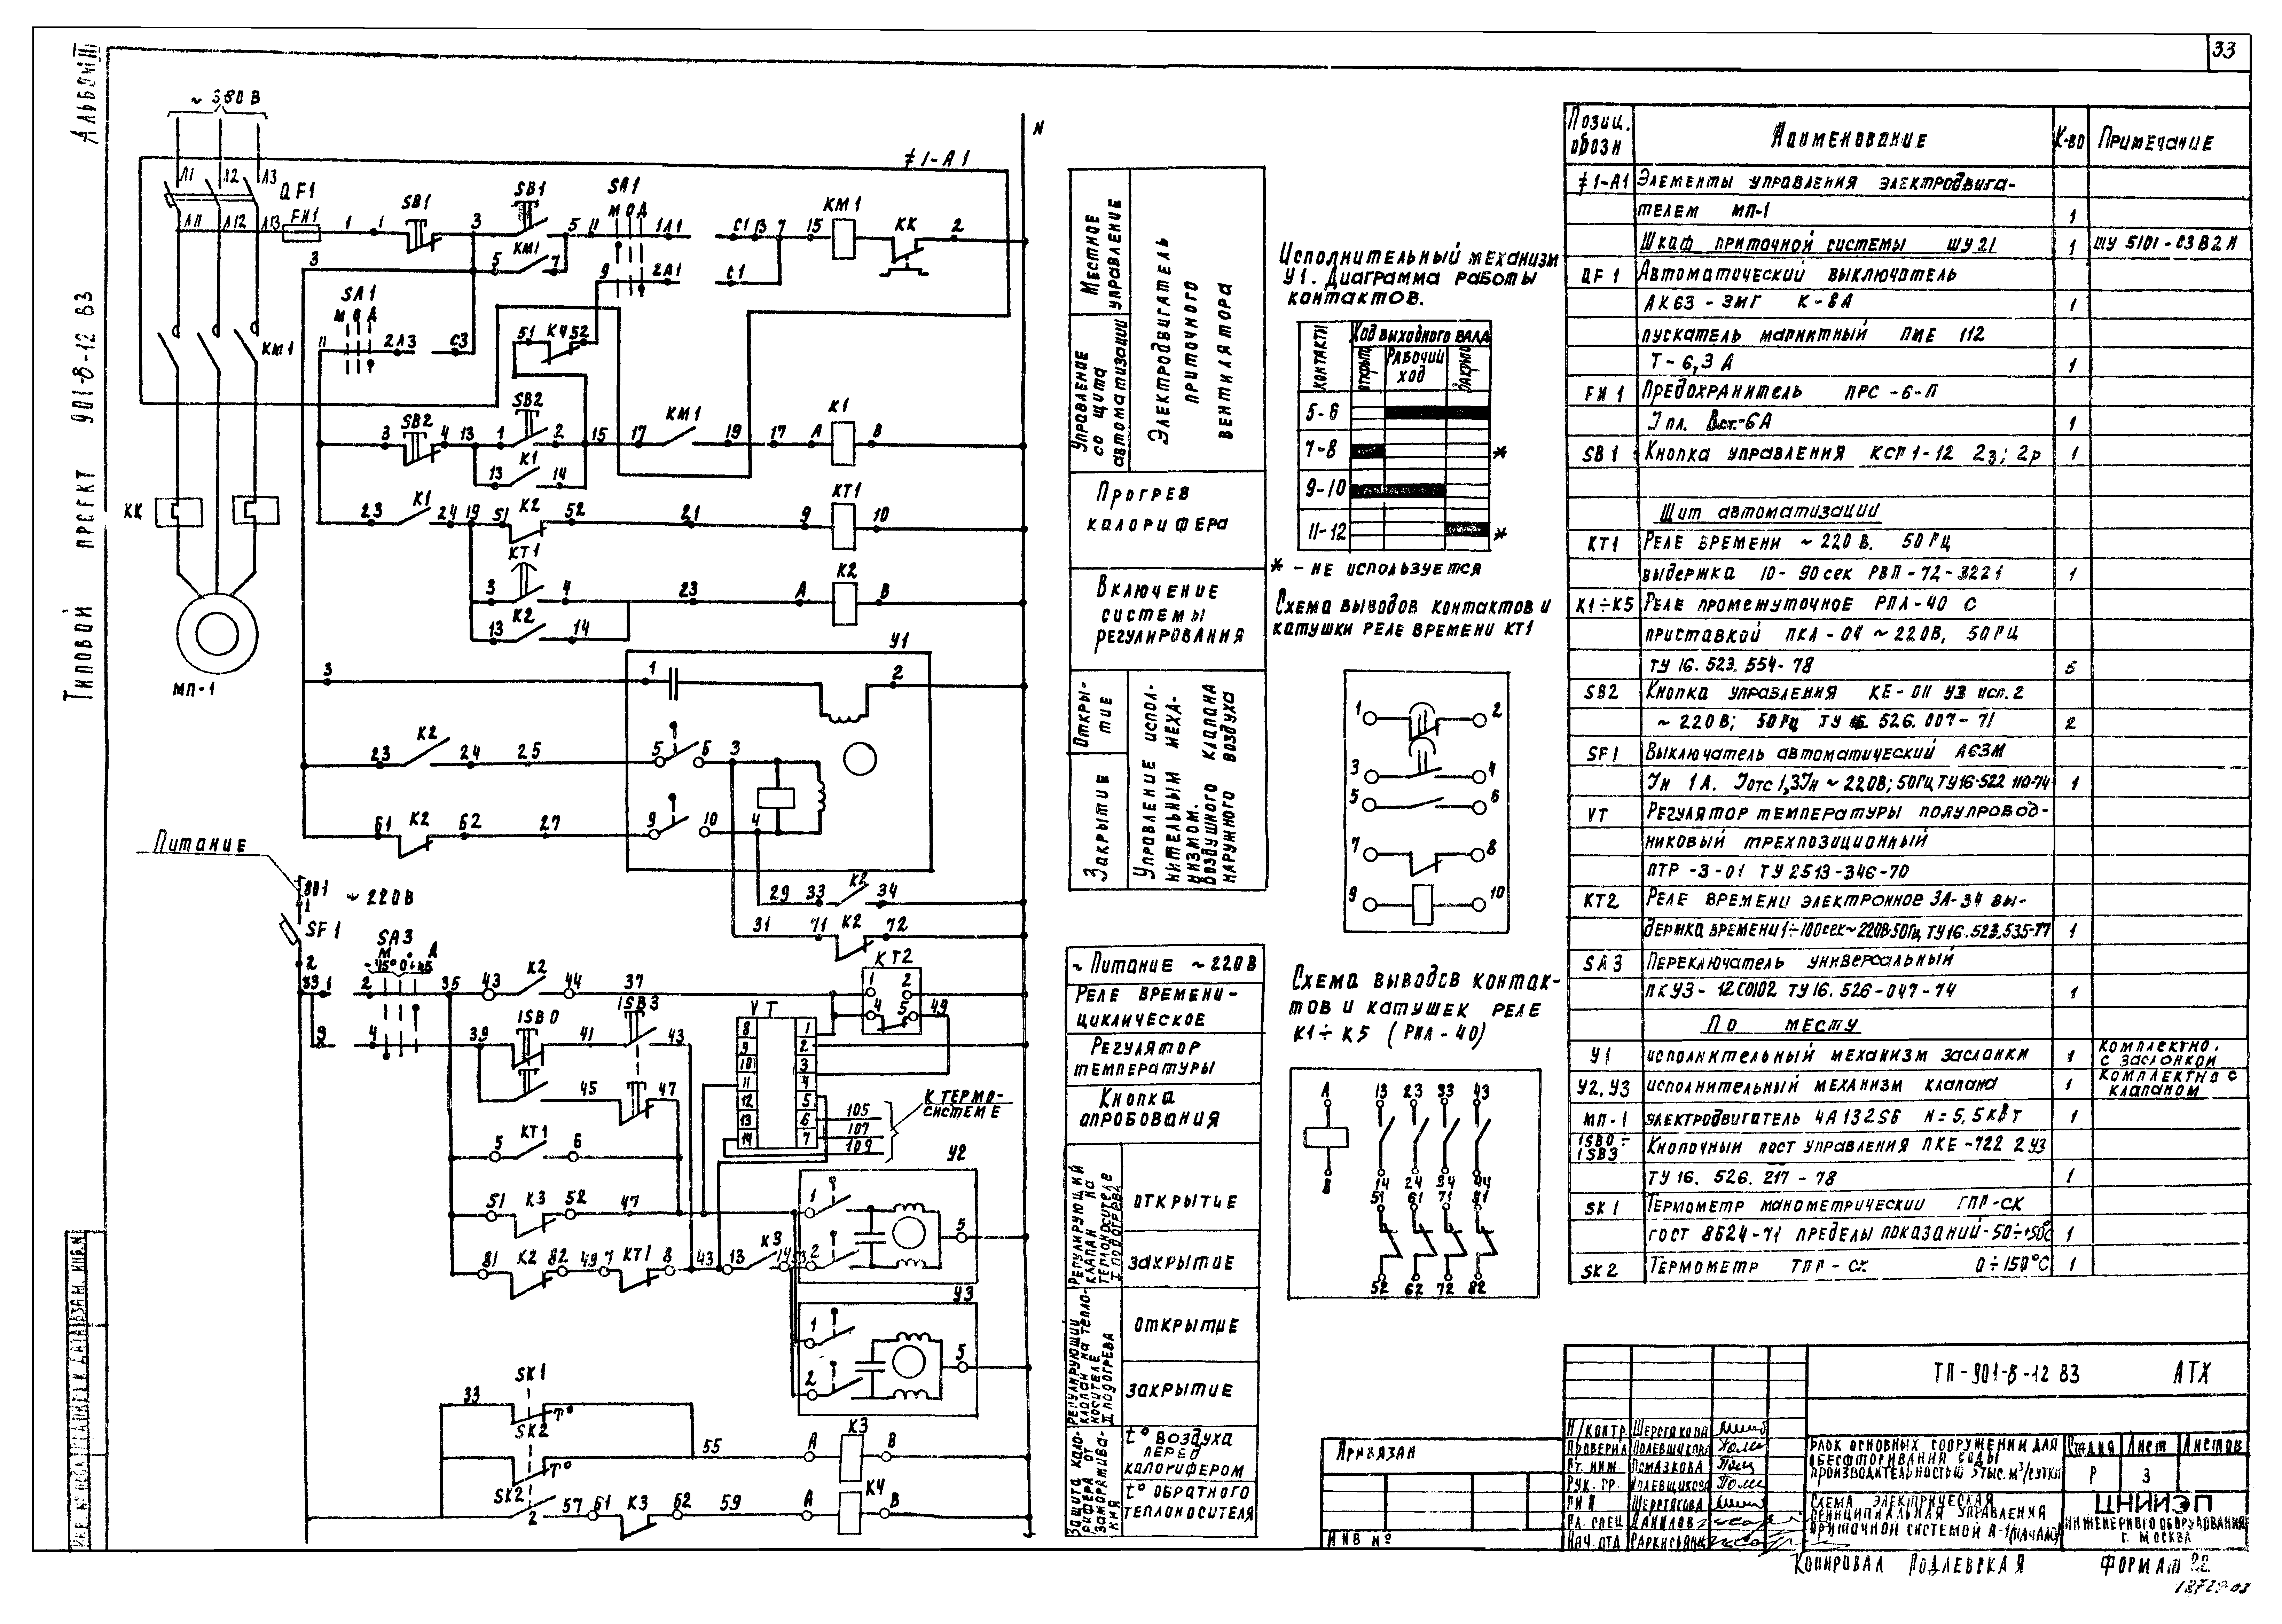 33
Альбом III
Типовой проект 901-8-12 83
~ 380 В
N
‡1-А1
Л1 Л2 Л3
QF1
Л11 Л12 Л13
FИ1
1 1 SB1 3 SB1 5 11 SA1 1Л1 С1 13 7 15 КМ1 КК 2
М О Д
3 5 КМ1 7 9 2Л1 С1
SA1
М О Д
11 2Л3 С3
51 К4 52
КМ1
SB2 SB2
3 4 13 1 2 15 17 КМ1 19 17 А К1 В
13 К1 14
КК
23 К1 24 19 51 К2 52 21 9 КТ1 10
КТ1
3 4 23 А К2 В
13 К2 14
МП-1
У1
3 1 2
23 К2 24 25 5 6 3
61 К2 62 27 9 10 4
Питание
801
1
~ 220 В
SF1
2
29 33 К2 34
31 71 К2 72
SA3
М О А
-45° 0 +45
33 1 2 35 43 К2 44 37 1 КТ2 2
4 5 49
1SB0 1SB3
3 4 39 41 43
45 47
VT
8 1
9 2
10 3
11 4
12 5
13 6
14 7
105
107
109
К термо-
системе
5 КТ1 6
51 К3 52 47
81 К2 82 49 7 КТ1 8 43 13 К3 14 53
У2
1
2
5
У3
1
2
5
SK1
33
Т°
SK2
Т°
55 А К3 В
SK2
2
57 61 К3 62 59 А К4 В
Местное управление
Управление со щита автоматизации
Электродвигатель приточного вентилятора
Прогрев
калорифера
Включение
системы
регулирования
Откры-
тие
Закрытие
Управление испол-
нительным меха-
низмом.
воздушного клапана
наружного воздуха
~ Питание ~ 220 В
Реле времени-
циклическое
Регулятор
температуры
Кнопка
опробования
Регулирующий
клапан на
теплоносителе
I подогрева
Открытие
Закрытие
Регулирующий
клапан на тепло-
носителе
II подогрева
Открытие
Закрытие
Защита кало-
рифера от
заморажива-
ния
t° воздуха
перед
калорифером
t° обратного
теплоносителя
Исполнительный механизм
У1. Диаграмма работы
контактов.
Контакты
Ход выходного вала
Открыто
Рабочий
ход
Закрыто
5-6
7-8 *
9-10
11-12 *
* - не используется
Схема выводов контактов и
катушки реле времени КТ1
1 2
3 4
5 6
7 8
9 10
Схема выводов контак-
тов и катушек реле
К1÷К5 (РПЛ-40)
А 13 23 33 43
В 14 24 34 44
51 61 71 81
52 62 72 82
Позиц. обозн Наименование К-во Примечание
‡1-А1 Элементы управления электродвига-
телем МП-1 1
Шкаф приточной системы ШУ21 1 ШУ 5101-03В2И
QF1 Автоматический выключатель
АК63-3МГ К-8А 1
пускатель магнитный ПМЕ 112
Т-6,3 А 1
FИ1 Предохранитель ПРС-6-П
Iпл. Вст.-6А 1
SB1 Кнопка управления КСП1-12 2з; 2р 1
Щит автоматизации
КТ1 Реле времени ~ 220 В. 50 Гц
выдержка 10-90 сек РВП-72-3221 1
К1÷К5 Реле промежуточное РПЛ-40 с
приставкой ПКЛ-04 ~ 220В, 50Гц
ТУ 16.523.554-78 5
SB2 Кнопка управления КЕ-011 У3 исп.2
~ 220 В; 50 Гц ТУ 16.526.007-71 2
SF1 Выключатель автоматический А63М
Iн 1А. Iотс 1,3Iн ~ 220В; 50Гц ТУ16-522 110-74 1
VT Регулятор температуры полупровод-
никовый трехпозиционный
ПТР-3-01 ТУ 2513-346-70
КТ2 Реле времени электронное ЭЛ-34 вы-
держка времени 1÷100сек~220В50Гц ТУ16.523.535-77 1
SA3 Переключатель универсальный
ПКУ3-12С0102 ТУ 16.526-047-74 1
По месту
У1 исполнительный механизм заслонки 1 комплектно. с заслонкой
У2, У3 исполнительный механизм клапана 1 комплектно с клапаном
МП-1 электродвигатель 4А132S6 N=5,5кВт 1
1SB0÷ 1SB3 Кнопочный пост управления ПКЕ-722 2У3
ТУ 16.526.217-78 1
SK1 Термометр манометрический ТПП-СК
ГОСТ 8624-71 пределы показаний-50÷+50°С 1
SK2 Термометр ТПП-СК 0÷150°С 1
ТП-901-8-12 83 АТХ
Н/контр Шерстакова
Проверил Полевщикова
Ст. инж. Помазкова
Рук. гр. Полевщикова
ГИП Шерстакова
Гл. спец Данилов
Нач. отд Саркисьянц
Блок основных сооружений для
обесфторивания воды
производительностью 5 тыс. м³/сутки
Стадия Лист Листов
Р 3
Схема электрическая
принципиальная управления
приточной системой П-1 (начало)
ЦНИИЭП
инженерного оборудования
г. Москва
Привязан
Инв №
Копировал Подлевская Формат 22
18729-03